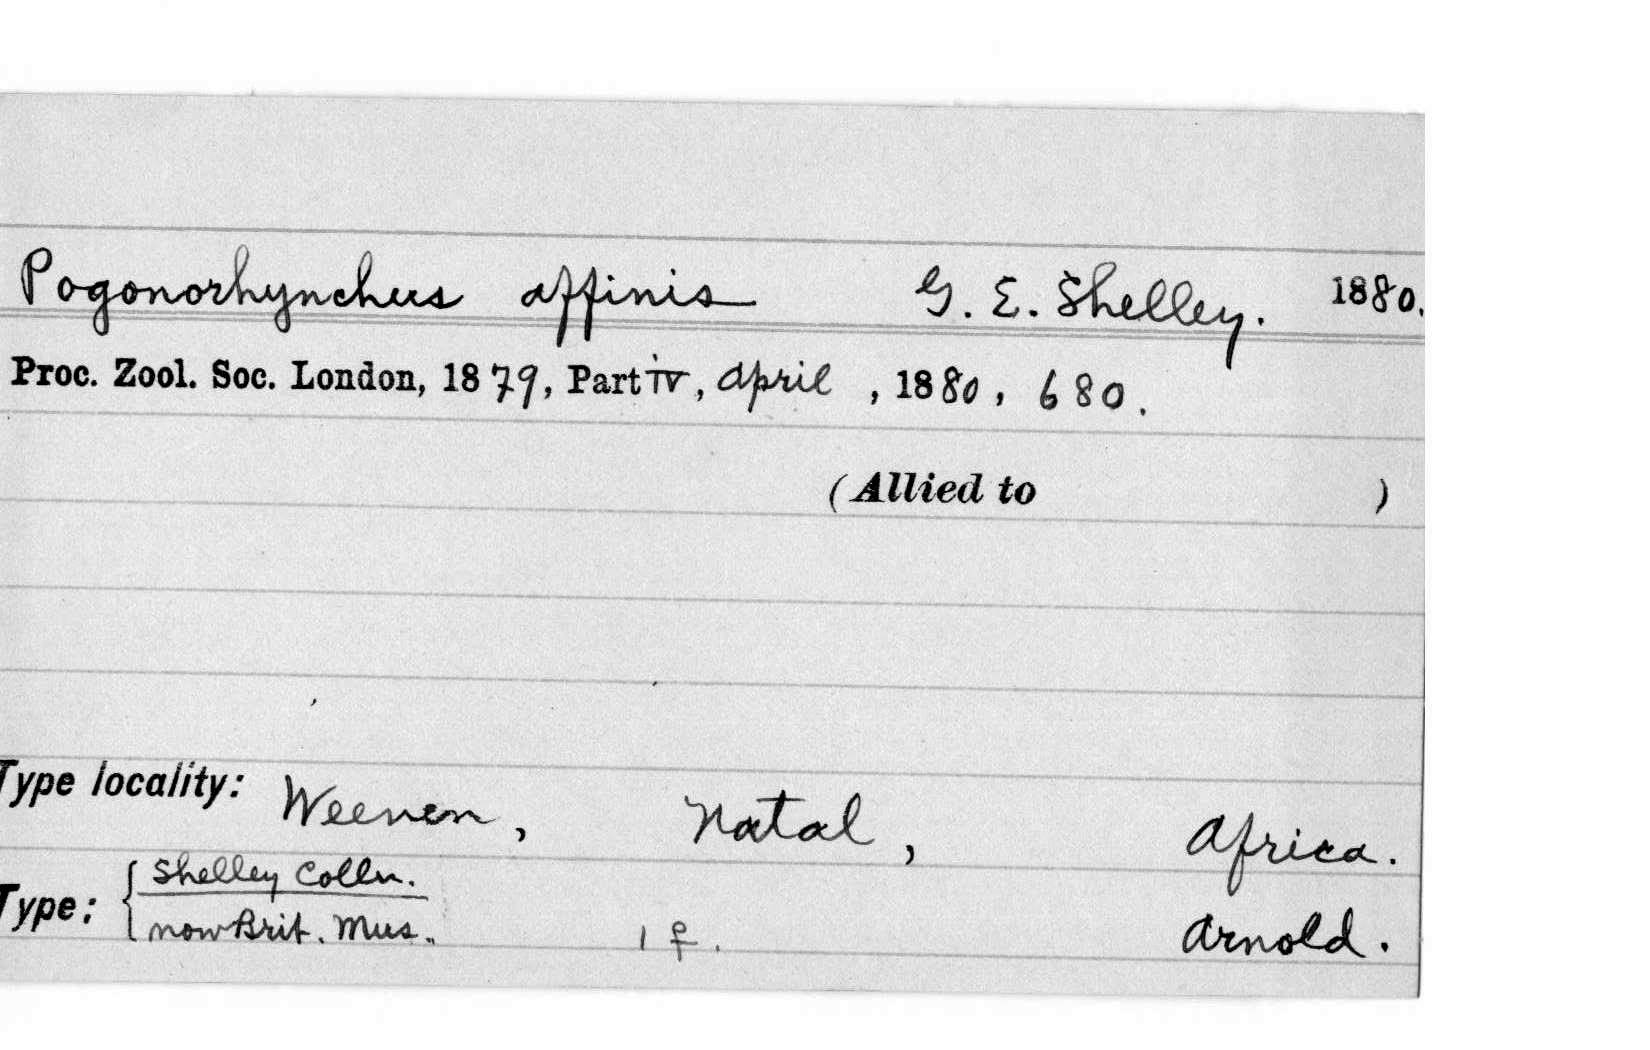 Pogonorhynchus affinis G. E. Shelley. 1880.
Proc. Zool. Soc. London, 1879, Part iv, April, 1880, 680.
(Allied to )
Type locality: Weenen, Natal, Africa.
Type: { Shelley Colln.
now Brit. Mus. 1 ♀. Arnold.